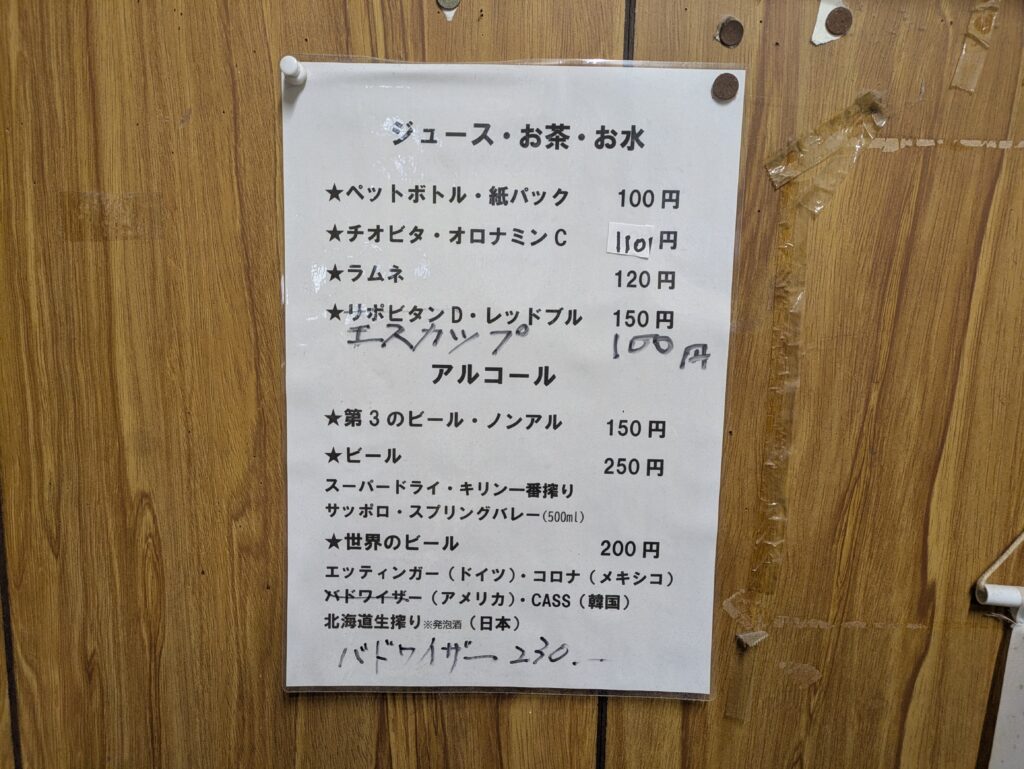 ジュース・お茶・お水
★ペットボトル・紙パック 100円
★チオビタ・オロナミンC 110円
★ラムネ 120円
★リポビタンD・レッドブル 150円
エスカップ 100円
アルコール
★第3のビール・ノンアル 150円
★ビール 250円
スーパードライ・キリン一番搾り
サッポロ・スプリングバレー(500ml)
★世界のビール 200円
エッティンガー(ドイツ)・コロナ(メキシコ)
バドワイザー(アメリカ)・CASS(韓国)
北海道生搾り※発泡酒(日本)
バドワイザー 230.―